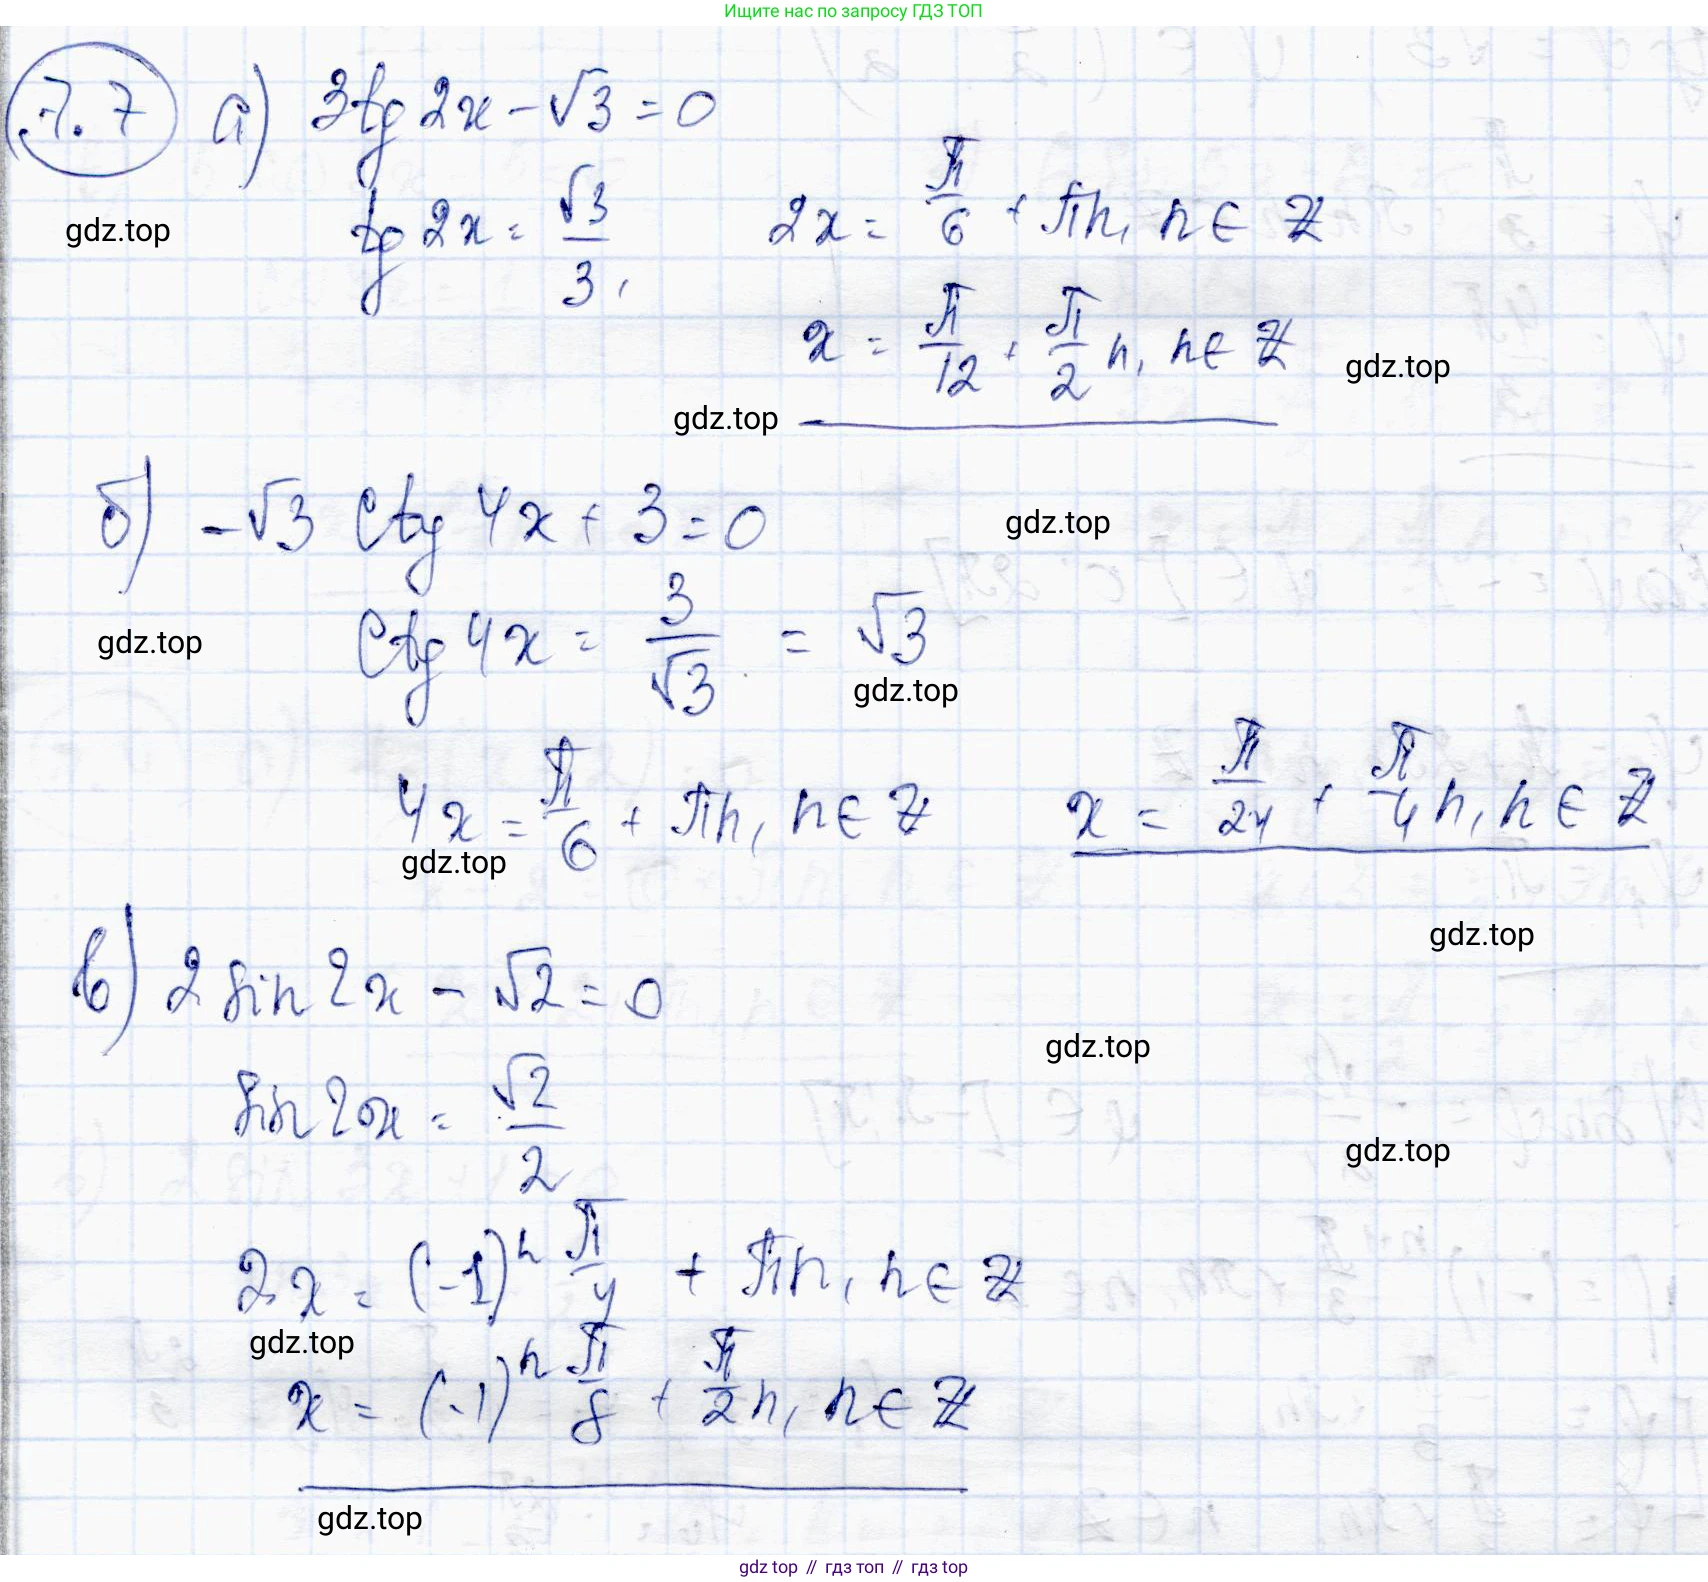 Ищите нас по запросу ГДЗ ТОП
7.7 а) 3tg 2x - √3 = 0
gdz.top
tg 2x = √3/3,   2x = π/6 + πn, n ∈ Z
x = π/12 + π/2 n, n ∈ Z
gdz.top
gdz.top
б) -√3 ctg 4x + 3 = 0
gdz.top
ctg 4x = 3/√3 = √3
gdz.top
gdz.top
4x = π/6 + πn, n ∈ Z   x = π/24 + π/4 n, n ∈ Z
gdz.top
gdz.top
в) 2 sin 2x - √2 = 0
gdz.top
sin 2x = √2/2
gdz.top
2x = (-1)^n π/4 + πn, n ∈ Z
gdz.top
x = (-1)^n π/8 + π/2 n, n ∈ Z
gdz.top
gdz top // гдз топ // гдз top